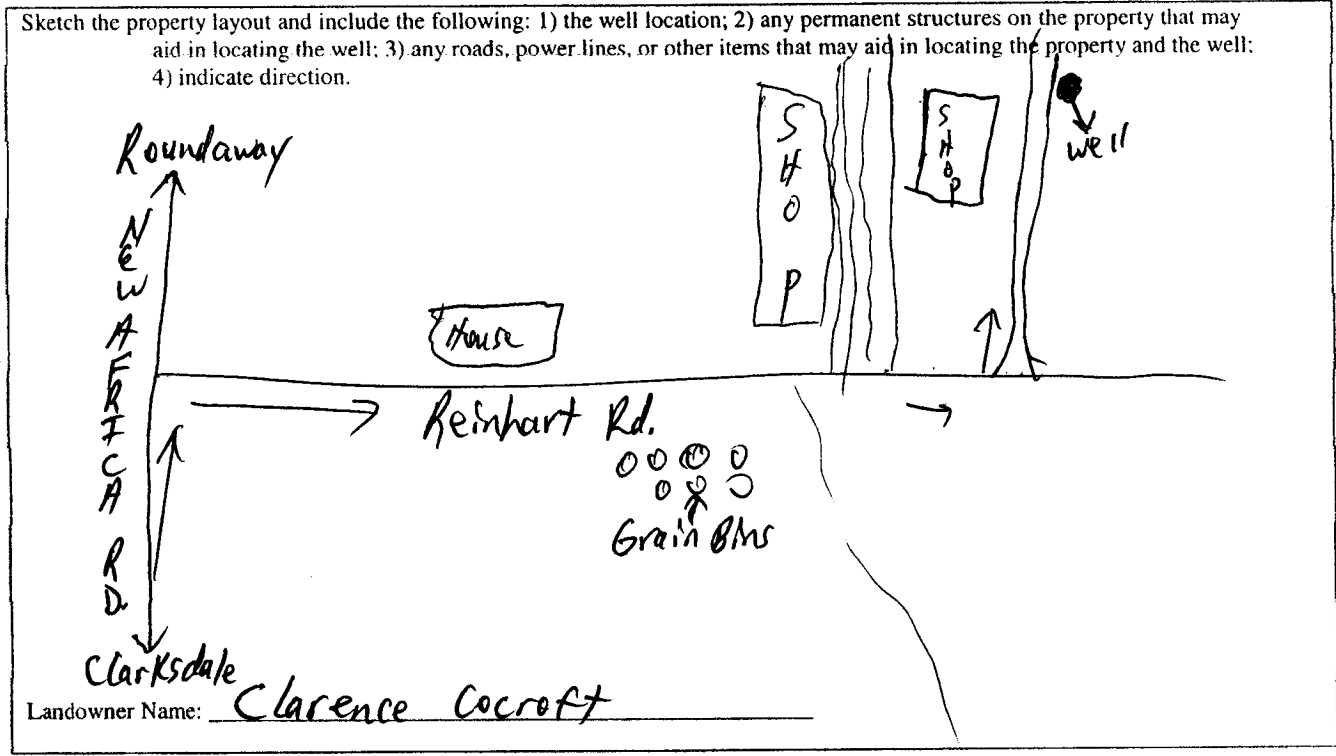 Sketch the property layout and include the following: 1) the well location; 2) any permanent structures on the property that may
aid in locating the well; 3) any roads, power lines, or other items that may aid in locating the property and the well;
4) indicate direction.
Roundaway
NEW AFRICA RD.
SHOP
SHOP
well
House
Reinhart Rd.
Grain Bins
Clarksdale
Landowner Name: Clarence Cocroft